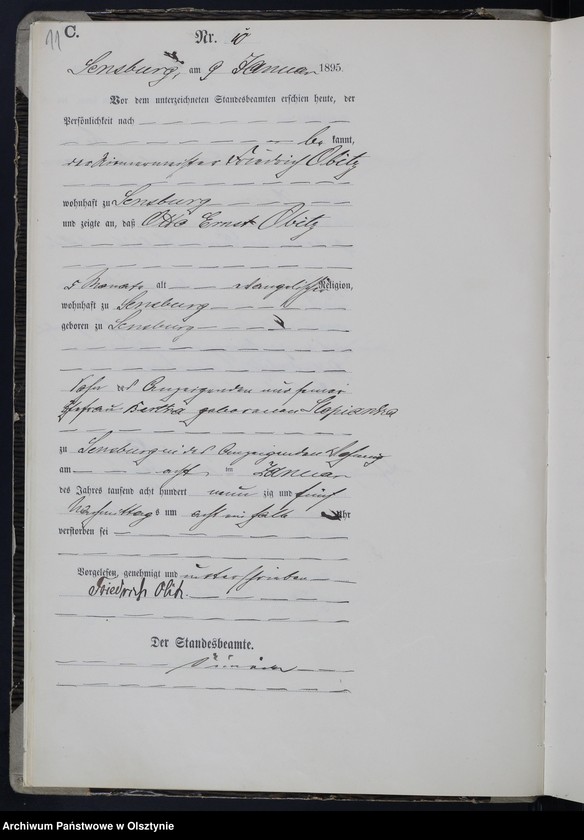 11
C.
Nr. 10
Sensburg, am 9 Januar 1895.
Vor dem unterzeichneten Standesbeamten erschien heute, der
Persönlichkeit nach
be kannt,
der Zimmermeister Friedrich Obitz
wohnhaft zu Sensburg
und zeigte an, daß Otto Ernst Obitz
5 Monate alt evangelischer Religion,
wohnhaft zu Sensburg
geboren zu Sensburg
Sohn des Anzeigenden und seiner
Ehefrau Bertha geborenen
zu Sensburg in des Anzeigenden Wohnung
am acht im Januar
des Jahres tausend acht hundert neun zig und fünf
Nachmittags um acht ein halb Uhr
verstorben sei
Vorgelesen, genehmigt und unterschrieben
Friedrich Obitz
Der Standesbeamte.
Archiwum Państwowe w Olsztynie